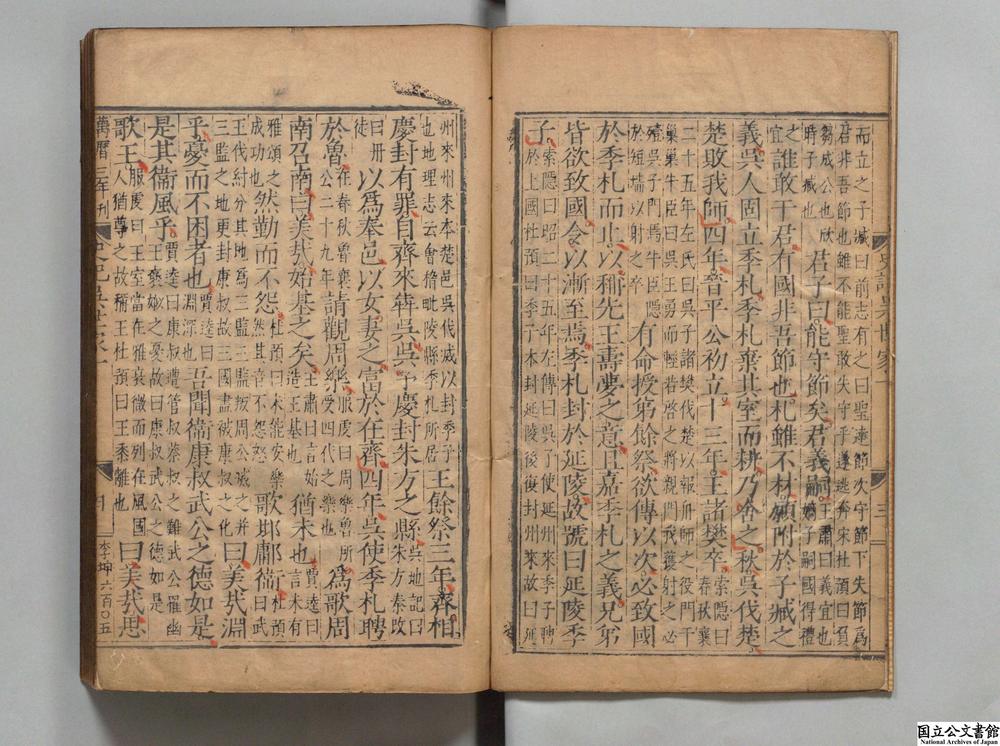 史記吳世家一
三
而立之子臧曰前志有之曰聖達節次守節下失節為
君非吾節也雖不能聖敢失守乎遂逃奔宋杜預曰負
芻成公也欣時子臧也君子曰能守節矣君義嗣王肅曰義宜也嫡子嗣國得禮
之宜誰敢干君有國非吾節也札雖不材願附於子臧之
義吳人固立季札季札棄其室而耕乃舍之秋吳伐楚
楚敗我師四年晉平公初立十三年王諸樊卒索隱曰春秋襄
二十五年左氏曰吳子諸樊伐楚以報舟師之役門于
巢巢牛臣曰吳王勇而輕若啓之將親門我獲射之必
殪吳子門焉牛臣隱於短墻以射之卒有命授弟餘祭欲傳以次必致國
於季札而止以稱先王壽夢之意且嘉季札之義兄弟
皆欲致國令以漸至焉季札封於延陵故號曰延陵季
子索隱曰昭二十五年左傳曰吳子使延州來季子聘於上國杜預曰季子本封延陵後復封州來故曰延
州來州來本楚邑吳伐滅以封季子也地理志云會稽毗陵縣季札所居王餘祭三年齊相
慶封有罪自齊來犇吳吳予慶封朱方之縣吳地記曰朱方秦改
曰丹徒以為奉邑以女妻之富於在齊四年吳使季札聘
於魯在春秋魯襄公二十九年請觀周樂服虔曰周樂魯所受四代之樂也為歌周
南召南曰美哉始基之矣王肅曰言始造王基也猶未也賈逵曰言未有
雅頌之成功也然勤而不怨杜預曰未能安樂然其音不怨怒歌邶鄘衞杜預曰武
王伐紂分其地為三監三監叛周公滅之并三監之地更封康叔故三國盡被康叔之化曰美哉淵
乎憂而不困者也賈逵曰淵深也吾聞衞康叔武公之德如是
是其衞風乎賈逵曰康叔遭管叔蔡叔之難武公罹幽王褒姒之憂故曰康叔武公之德如是
歌王服虔曰王室當在雅衰微而列在風國人猶尊之故稱王杜預曰王黍離也曰美哉思
萬曆三年刊
史記吳世家一
四
李坤
六百〇五
国立公文書館
National Archives of Japan